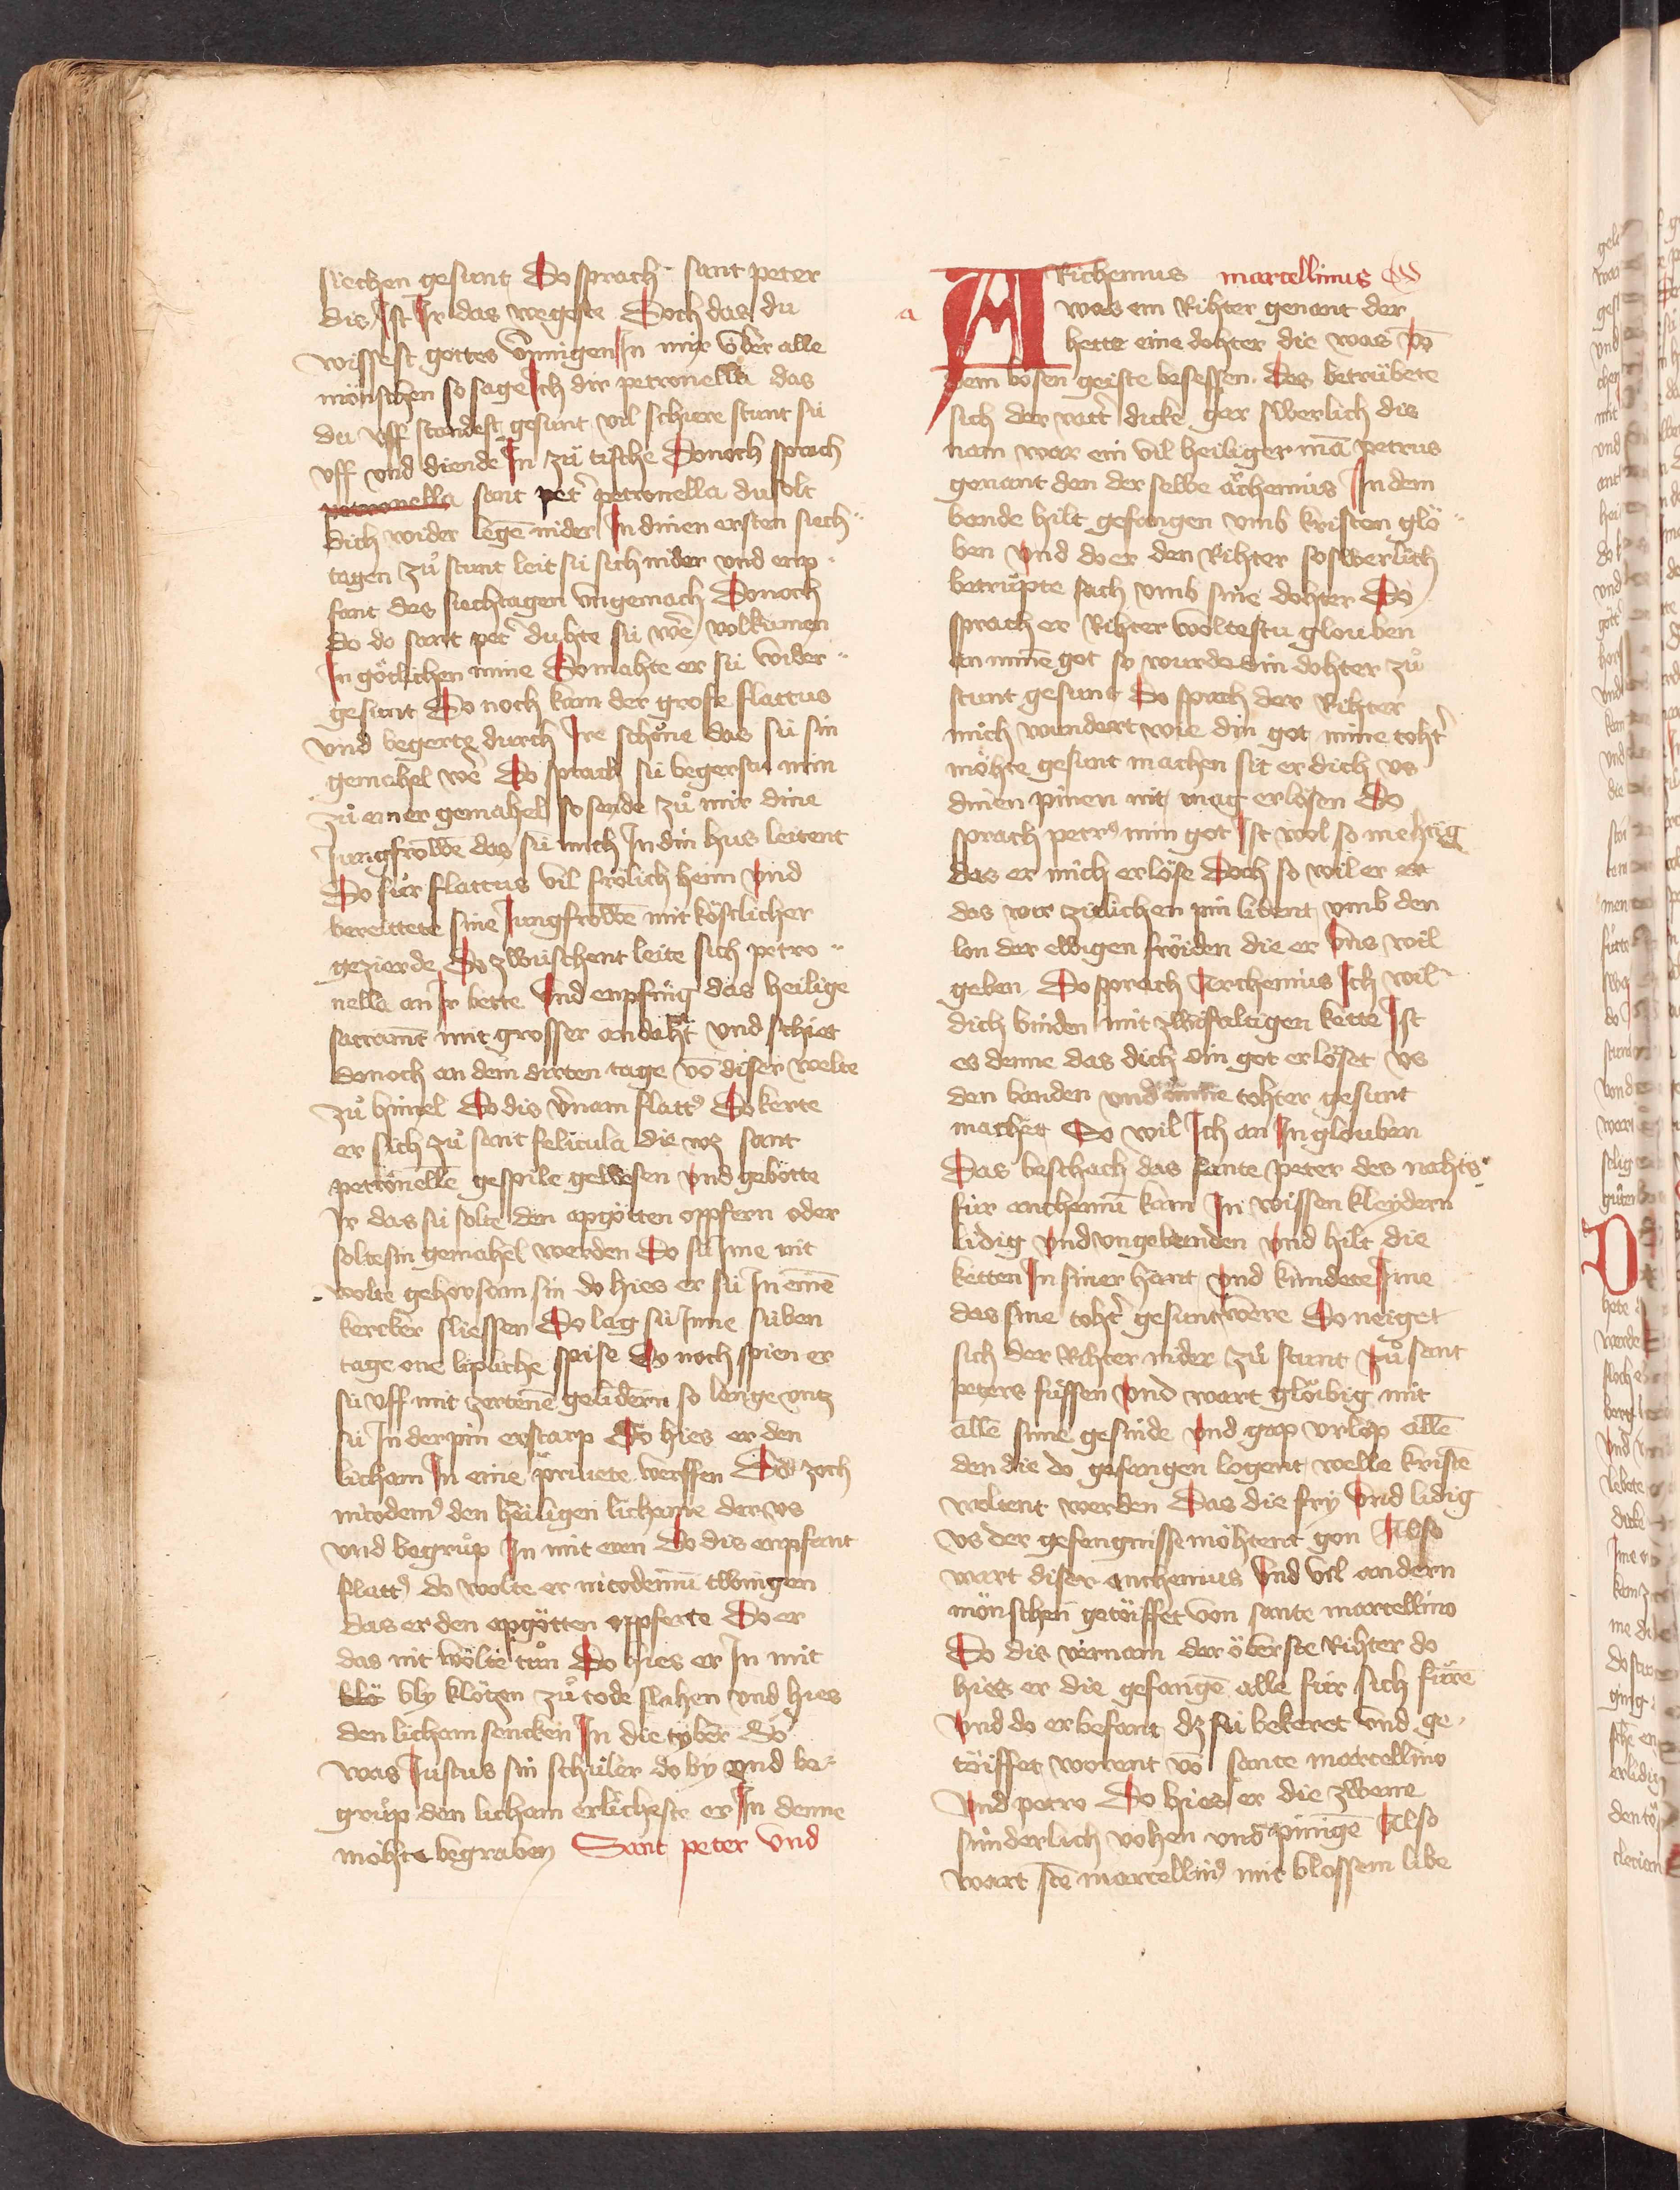 siechen gesunt Do sprach sant peter
dis Ist Ir das wegeste Doch das du
wissest gottes v̈rmigen In mir über alle
mönschen so sage Ich dir petronella das
du vff standest gesunt vil schiere stunt sü
vff vnd diende In zü tische Donoch sprach
petronella sant pet᷑ petronella du solt
dich wider legē nider In dinen ersten siech
tagen zů stunt leit sü sich nider vnd enp
fant des siechtagen vngemach Donoch
do do sant pet᷑ duhte sü wē volkumen
In götlichen mine Do mahte er sü wider
gesunt Do noch kam der grofe flaccus
vnd begerte durch Ire schöne das sü sin
gemahel wē Do sprach sü begerstu min
zů einer gemahel so sende zů mir dine
Jungfrowē das sü mich In din hus leitent
Do für flaccus vil frölich heim vnd
bereittete sine Jungfrowē mit köstlicher
gezierde Do zwüschent leite sich petro
nella an Ir bette vnd enpfing das heilige
sacramt mit grosser andaht vnd schiet
donoch an dem dirten tage vō diser welte
zů himel Do dis v̈nam flacc᷒ Do kerte
er sich zů sant felicula die wz sant
petronellē gespile gewesen vnd gebotte
Ir das sü solte den apgötten opfern oder
solte sin gemahel werden Do sü Ime nit
wolte gehorsam sin do hies er sü In einē
kercker sliessen Do lag sü Inne süben
tage one lipliche spise Do noch spien er
sü vff mit zertenē gelidern so lenge vntz
sü In der pin erstarp Do hies er den
licham In eine priuete werffen Do zoch
nicodem᷒ den heiligen lichame der vs
vnd begrůp In mit eren Do dis enpfant
flacc᷒ do wolte er nicodemū twingen
das er den apgötten opferte Do er
das nit wolte tůn Do hies er In mit
blö bly klötzen zů tode slahen vnd hies
den licham sencken In die tyber Do
was Justus sin schüler do by vnd be
grůp den licham erlicheste er In denne
möhte begraben Sant peter vnd
marcellinus
ARichemius
was ein Rihter genant der
hette eine dohter die was vō
dem bösen geiste besessen Des betrübete
sich der vatt᷑ dicke gar swerlich dis
nam war ein vil heiliger mā petrus
genant den der selbe archemius In dem
bande hilt gefangen vmb kristen glö
ben vnd do er den Rihter so swerlich
betrüpte sach vmb sine dohter Do
sprach er Rihter woltestu glouben
an minē got so wurde din dohter zů
stunt gesunt Do sprach der Rihter
mich wundert wie din got mine toht᷑
möhte gesunt machen sit er dich vs
dinen pinen nit mag erlösen Do
sprach petr᷒ min got Ist wol so mehtig
das er mich erlöse Doch so wil er
das wir zitlichen pin lident vmb den
lon der ewigen fröiden die er vns wil
geben Do sprach Archemius Ich wil
dich binden mit zwifaltigen kette Ist
es denne das dich din got erlöset vs
den banden vnd mine tohter gesunt
machet So wil Ich an In glouben
Das beschach das sante peter des nahts
für archemiū kam In wissen kleydern
lidig vnd vngebunden vnd hilt die
ketten In siner hant vnd kündete Ime
das sine toht᷑ gesunt were Do neiget
sich der Rihter nider zů stunt zů sant
peters füssen vnd wart glöibig mit
allē sime gesinde vnd gap vrlop allē
den die do gefangen logent welle kristē
woltent werden Das die fry vnd lidig
vs der gefengnisse möhtent gon Also
wart diser archemius vnd vil andern
mönschen getöiffet von sante marcellino
Do dis virnam der öberste Rihter do
hies er die gefangē alle für sich fürē
vnd do er befant dz sü bekeret vnd ge
töiffet worent vō sante marcellino
vnd petro Do hies er die zwene
sünderlich vohen vnd pinigē Also
wart sāte marcellin᷒ mit blossem libe